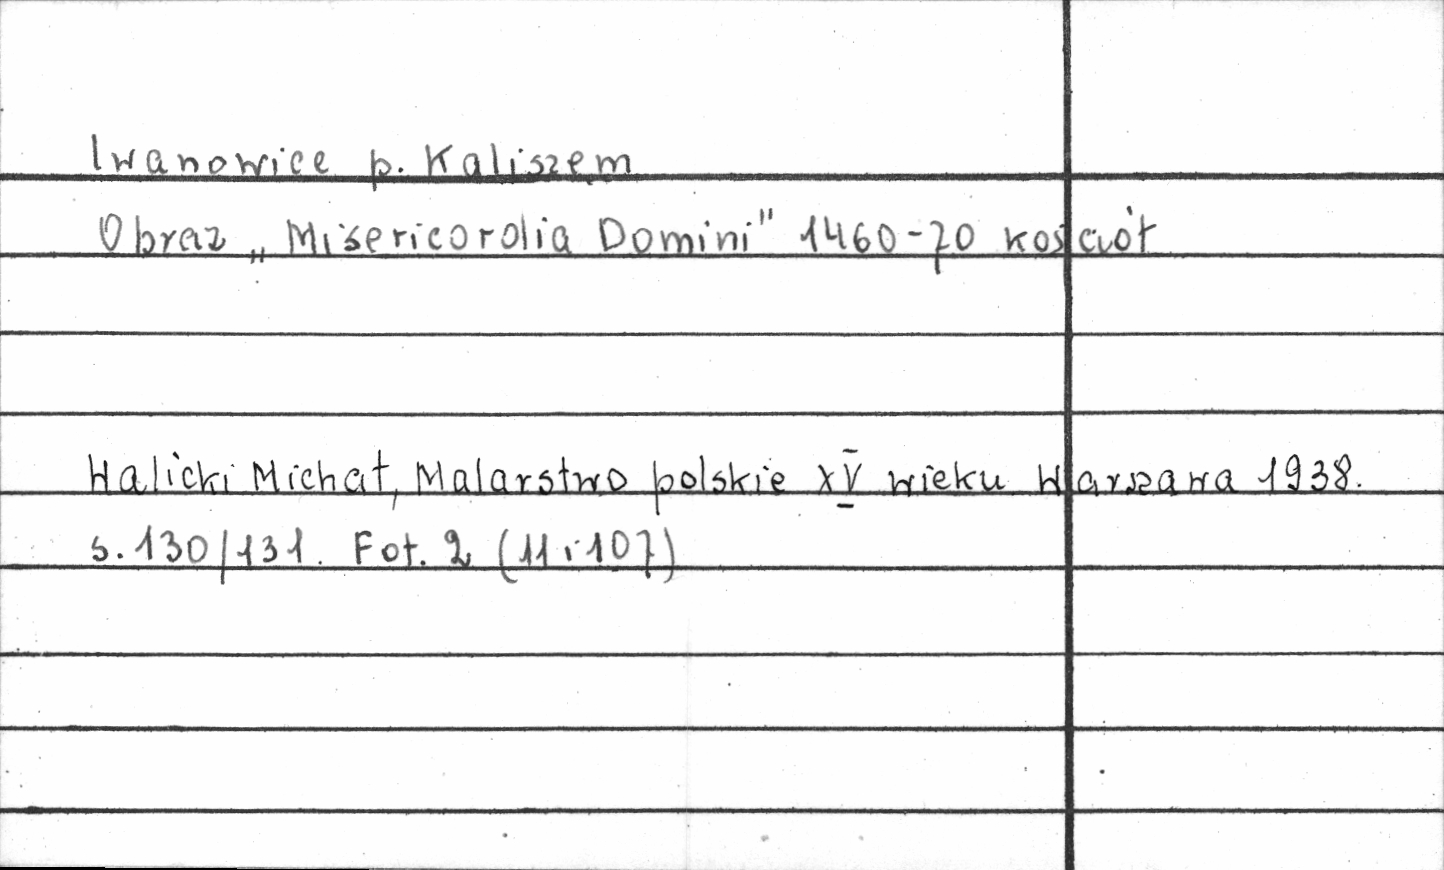 Iwanowice p. Kaliszem
Obraz „Misericordia Domini" 1460-70 kościół
Walicki Michał, Malarstwo polskie XV wieku Warszawa 1938.
s. 130/131. Fot. 2 (11 i 107)